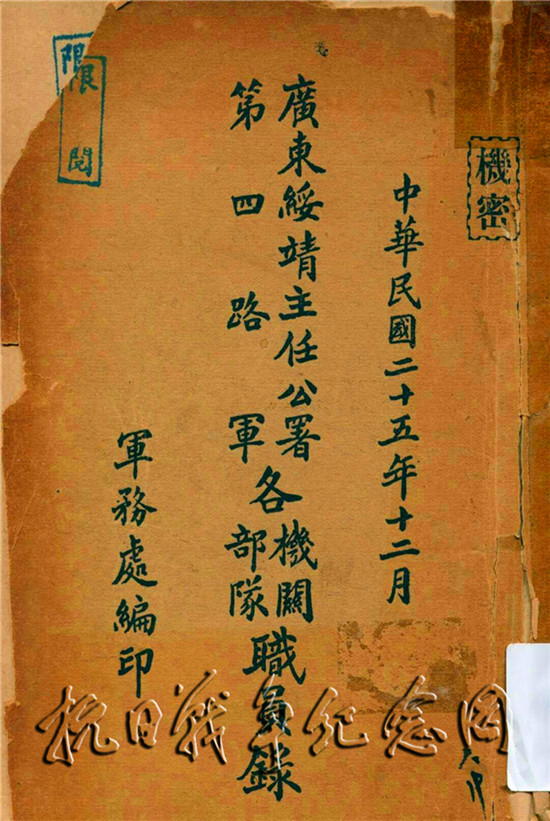 機密
中華民國二十五年十二月
廣東綏靖主任公署
第四路軍
各
機關
部隊
職員錄
軍務處編印
限閱
限
抗日战争纪念网